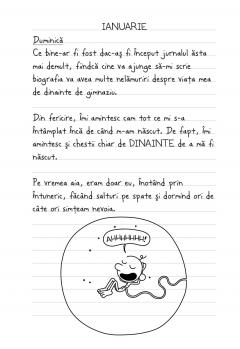 IANUARIE
Duminică
Ce bine-ar fi fost dac-aș fi început jurnalul ăsta
mai demult, fiindcă cine va ajunge să-mi scrie
biografia va avea multe nelămuriri despre viața mea
de dinainte de gimnaziu.
Din fericire, îmi amintesc cam tot ce mi s-a
întâmplat încă de când m-am născut. De fapt, îmi
amintesc și chestii chiar de DINAINTE de a mă fi
născut.
Pe vremea aia, eram doar eu, înotând prin
întuneric, făcând salturi pe spate și dormind ori de
câte ori simțeam nevoia.